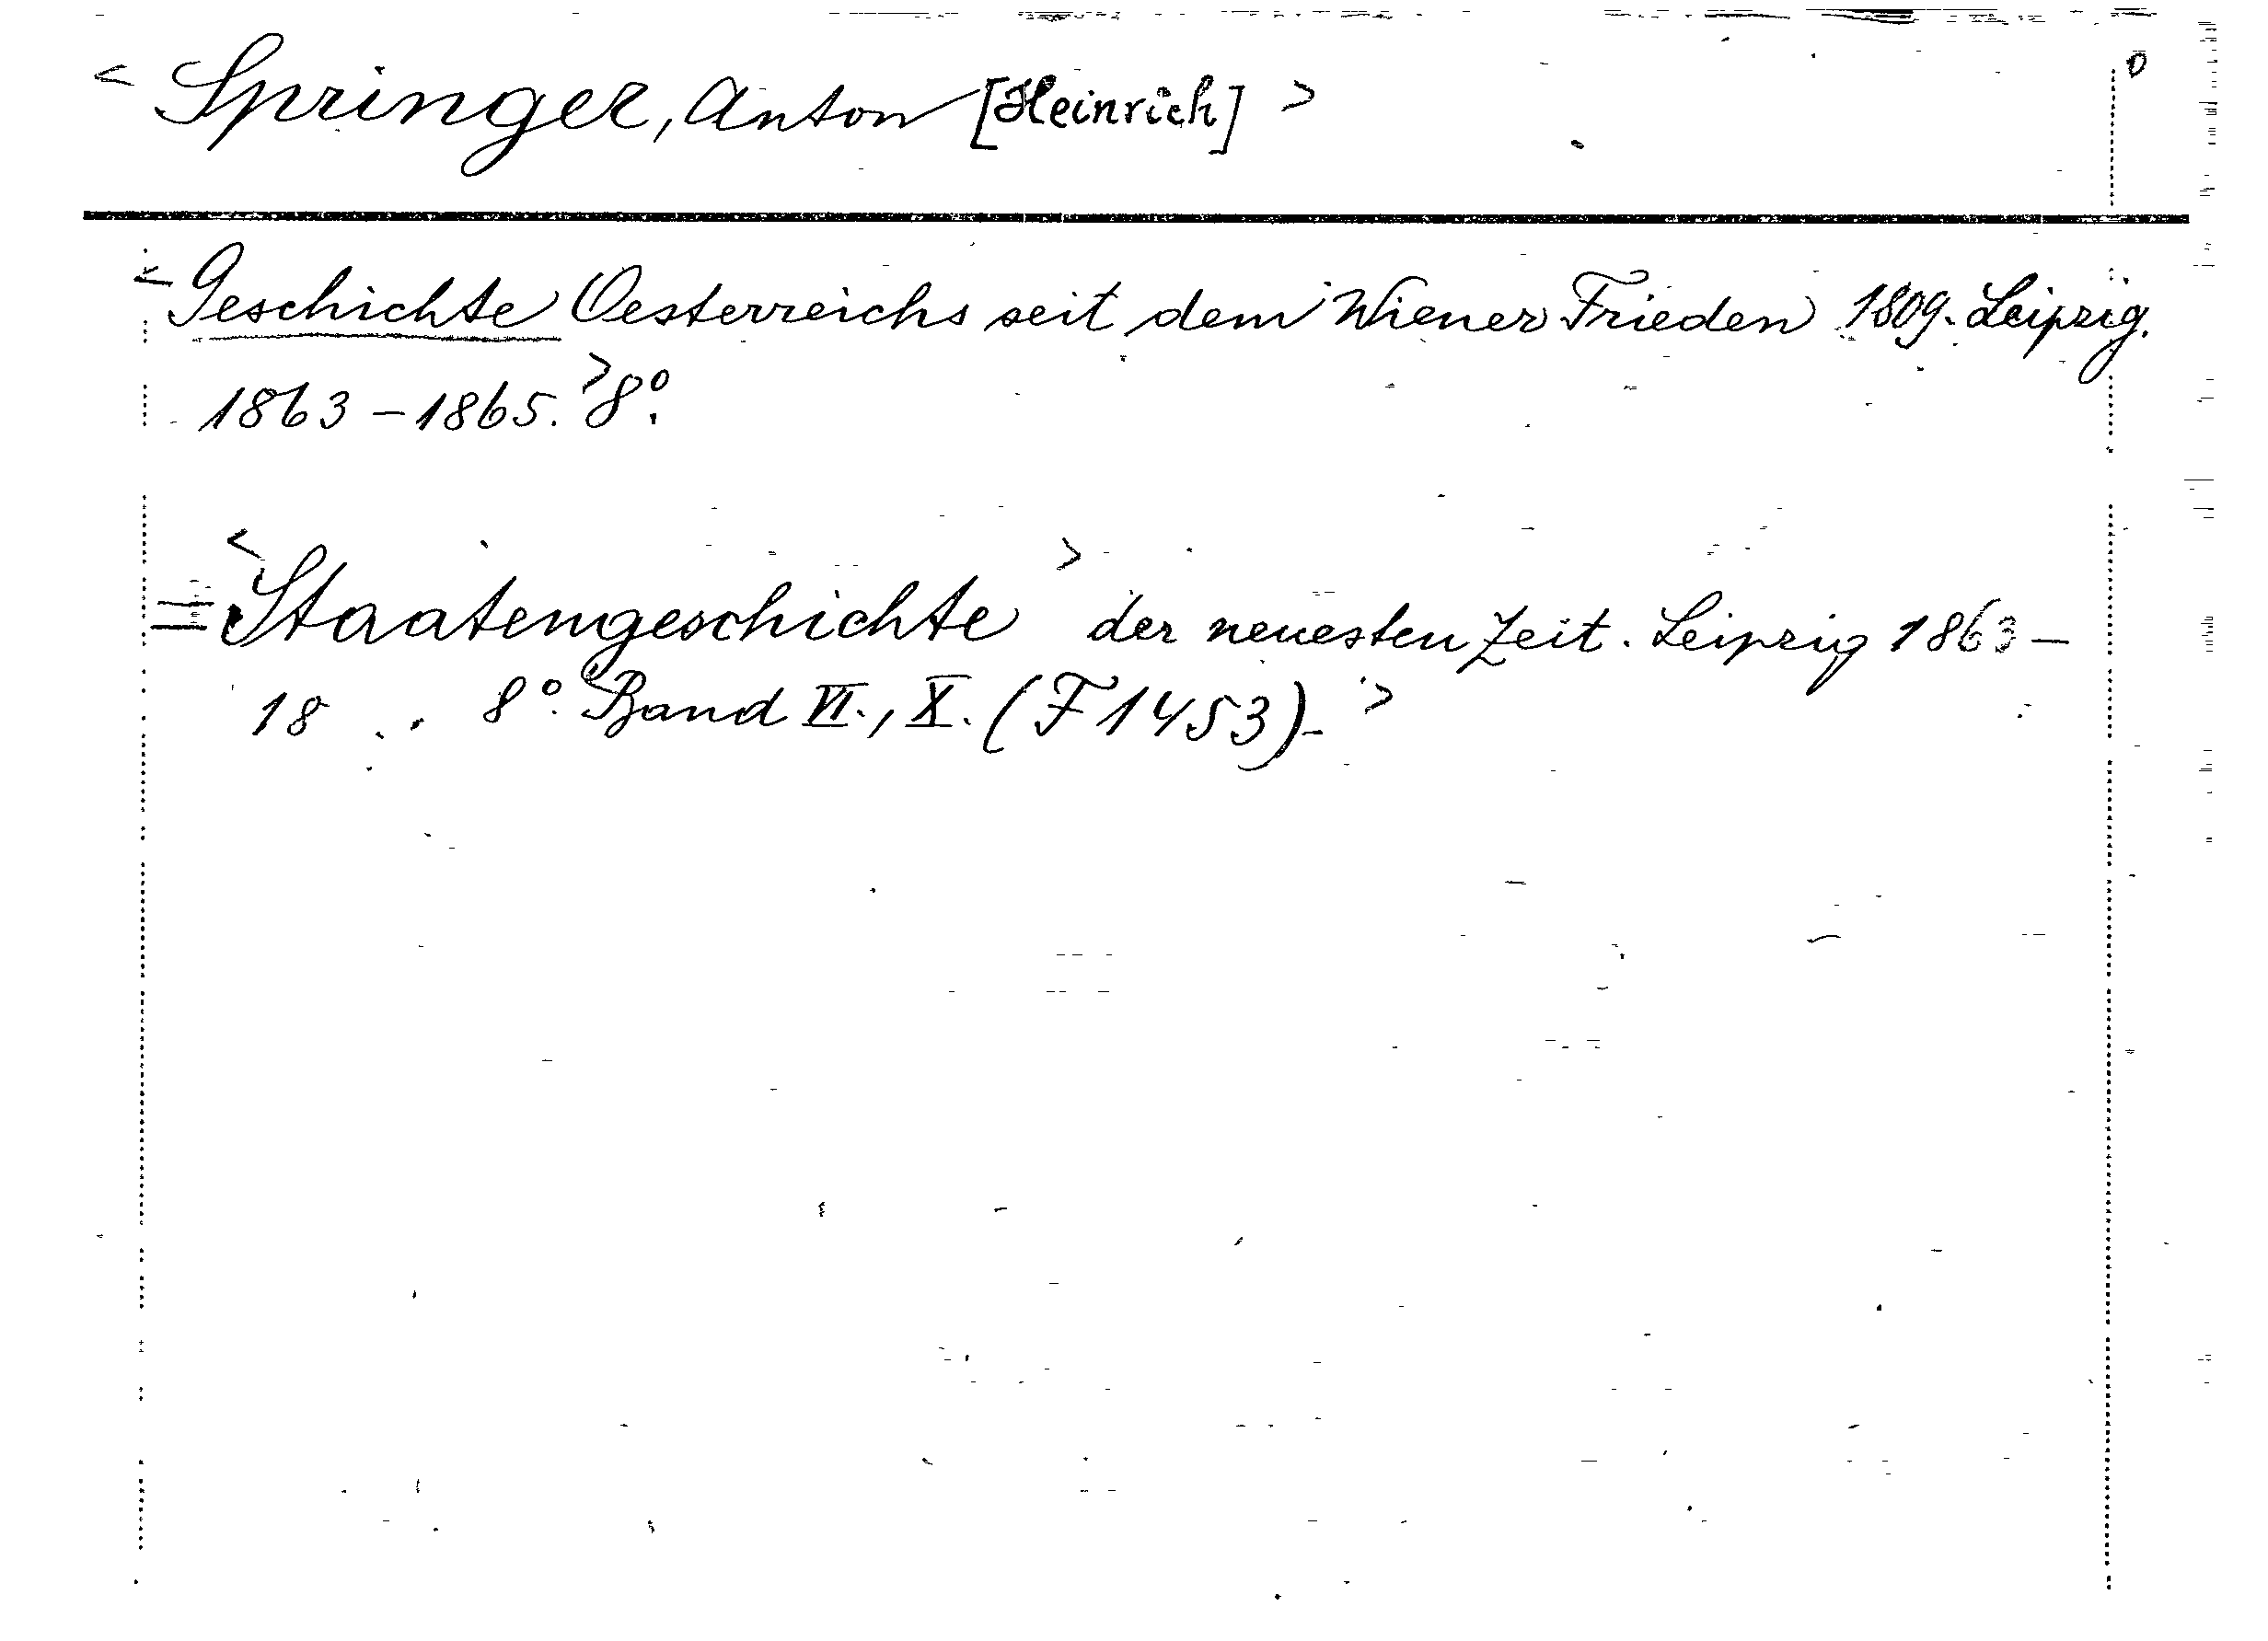 < Springer, Anton [Heinrich] > 0
< Geschichte Oesterreichs seit dem Wiener Frieden 1809. Leipzig.
1863 – 1865. > 8°.
= < Staatengeschichte > der neuesten Zeit. Leipzig 1863 –
18 . 8°. < Band VI., X. (F 1453). >